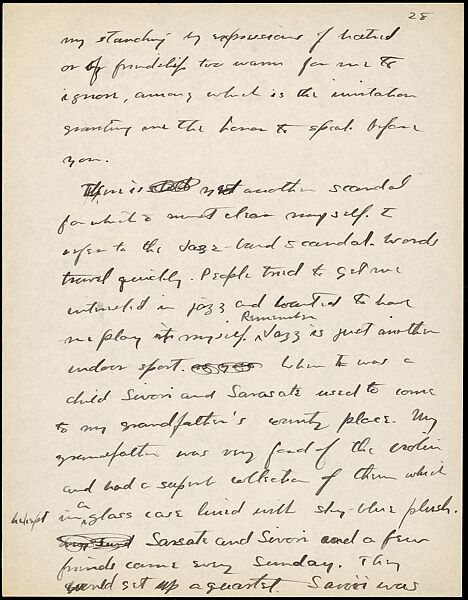 28
my standing by expressions of hatred
or of friendship too warm for me to
ignore, among which is the invitation
granting me the honor to speak before
you.
There is yet another scandal
for which I must clear myself. I
refer to the Jazz-band scandal. Words
travel quickly. People tried to get me
interested in jazz and wanted to have
me play it myself. Remember Jazz is just another
indoor sport. When I was a
child Sivori and Sarasate used to come
to my grandfather's country place. My
grandfather was very fond of the violin
and had a superb collection of them which
he kept in a glass case lined with sky-blue plush.
Sarsate and Sivori and a few
friends came every Sunday. They
would get up a quartet. Sivori was